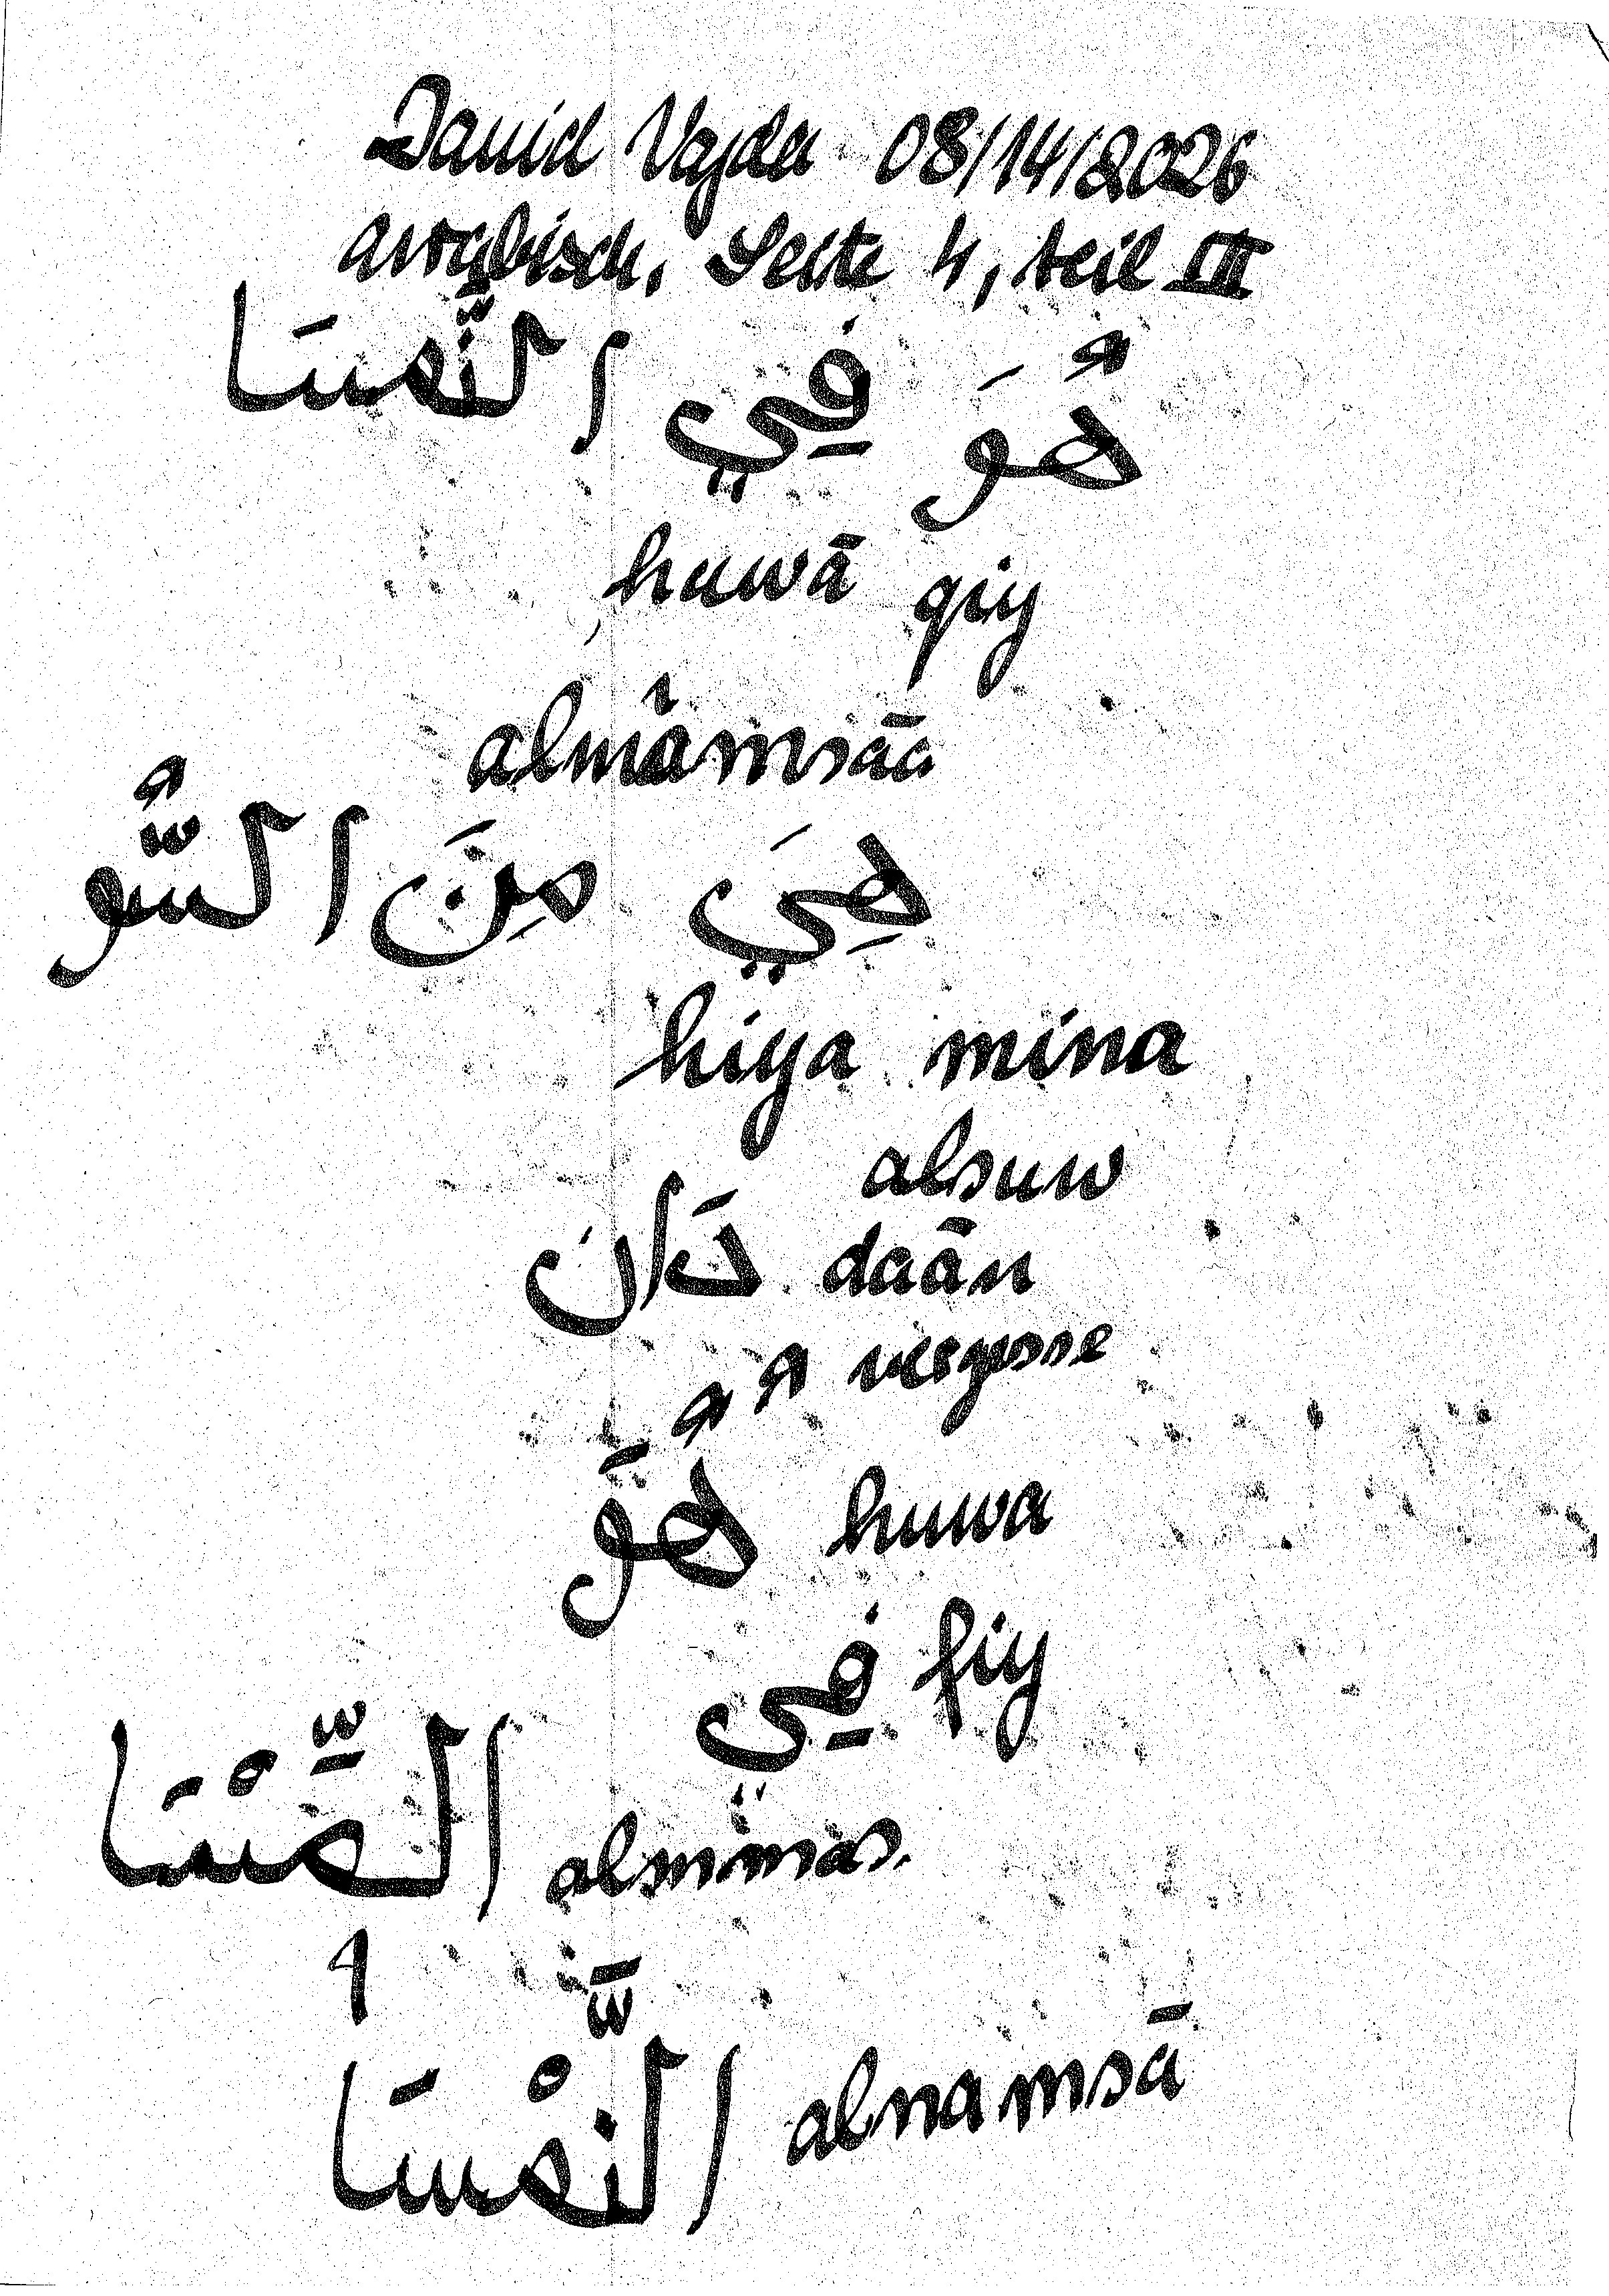 David Vajda 08/14/2026
arabisch, Seite 4, teil III
هُوَ فِي النَّمسَا
huwā qiy
almāmsāa
هِيَ مِنَ السُّو
hiya mina
alsuw
دَان daān
vergesse
هُوَّ huwa
فِي fiy
المَّْسَا
النَّمْسَا alnamsā